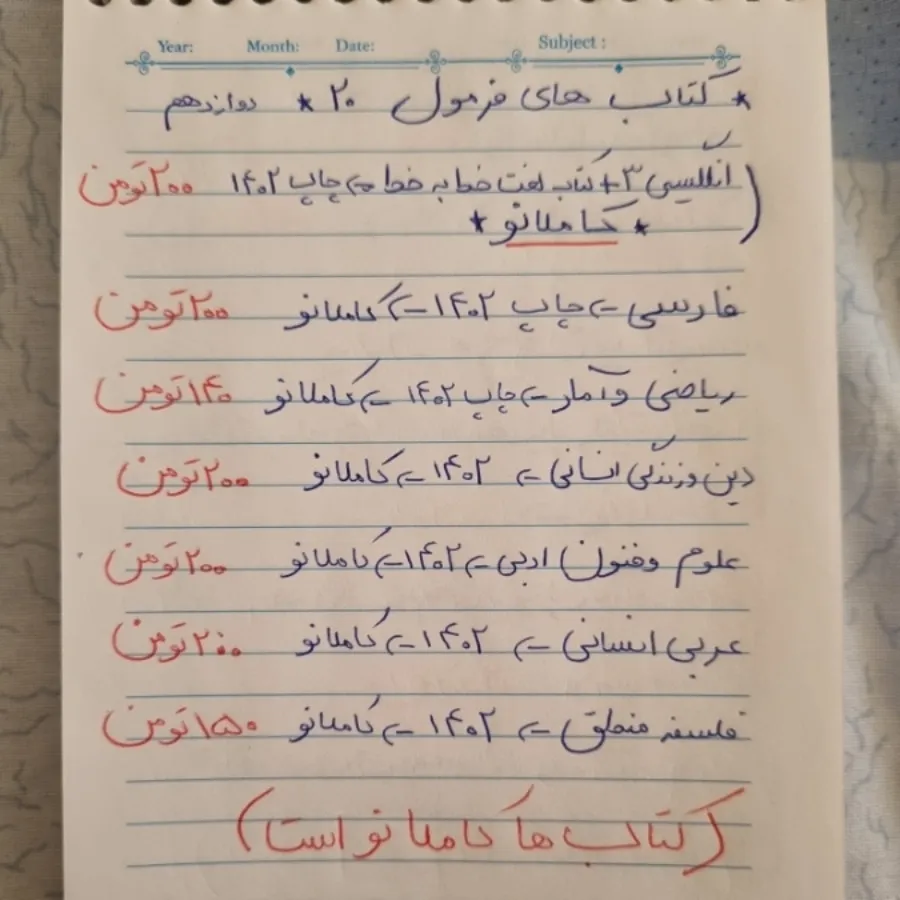 Year: Month: Date: Subject :
* کتاب های فرمول ۲۰ * دوازدهم
انگلیسی ۳ + کتاب لغت خط به خط ← چاپ ۱۴۰۲ ۲۰۰ تومن
* کاملا نو *
فارسی ← چاپ ۱۴۰۲ ← کاملا نو ۲۰۰ تومن
ریاضی و آمار ← چاپ ۱۴۰۲ ← کاملا نو ۱۴۰ تومن
دین و زندگی انسانی ← ۱۴۰۲ ← کاملا نو ۲۰۰ تومن
علوم و فنون ادبی ← ۱۴۰۲ ← کاملا نو ۲۰۰ تومن
عربی انسانی ← ۱۴۰۲ ← کاملا نو ۲۰۰ تومن
فلسفه منطق ← ۱۴۰۲ ← کاملا نو ۱۵۰ تومن
(کتاب ها کاملا نو است)